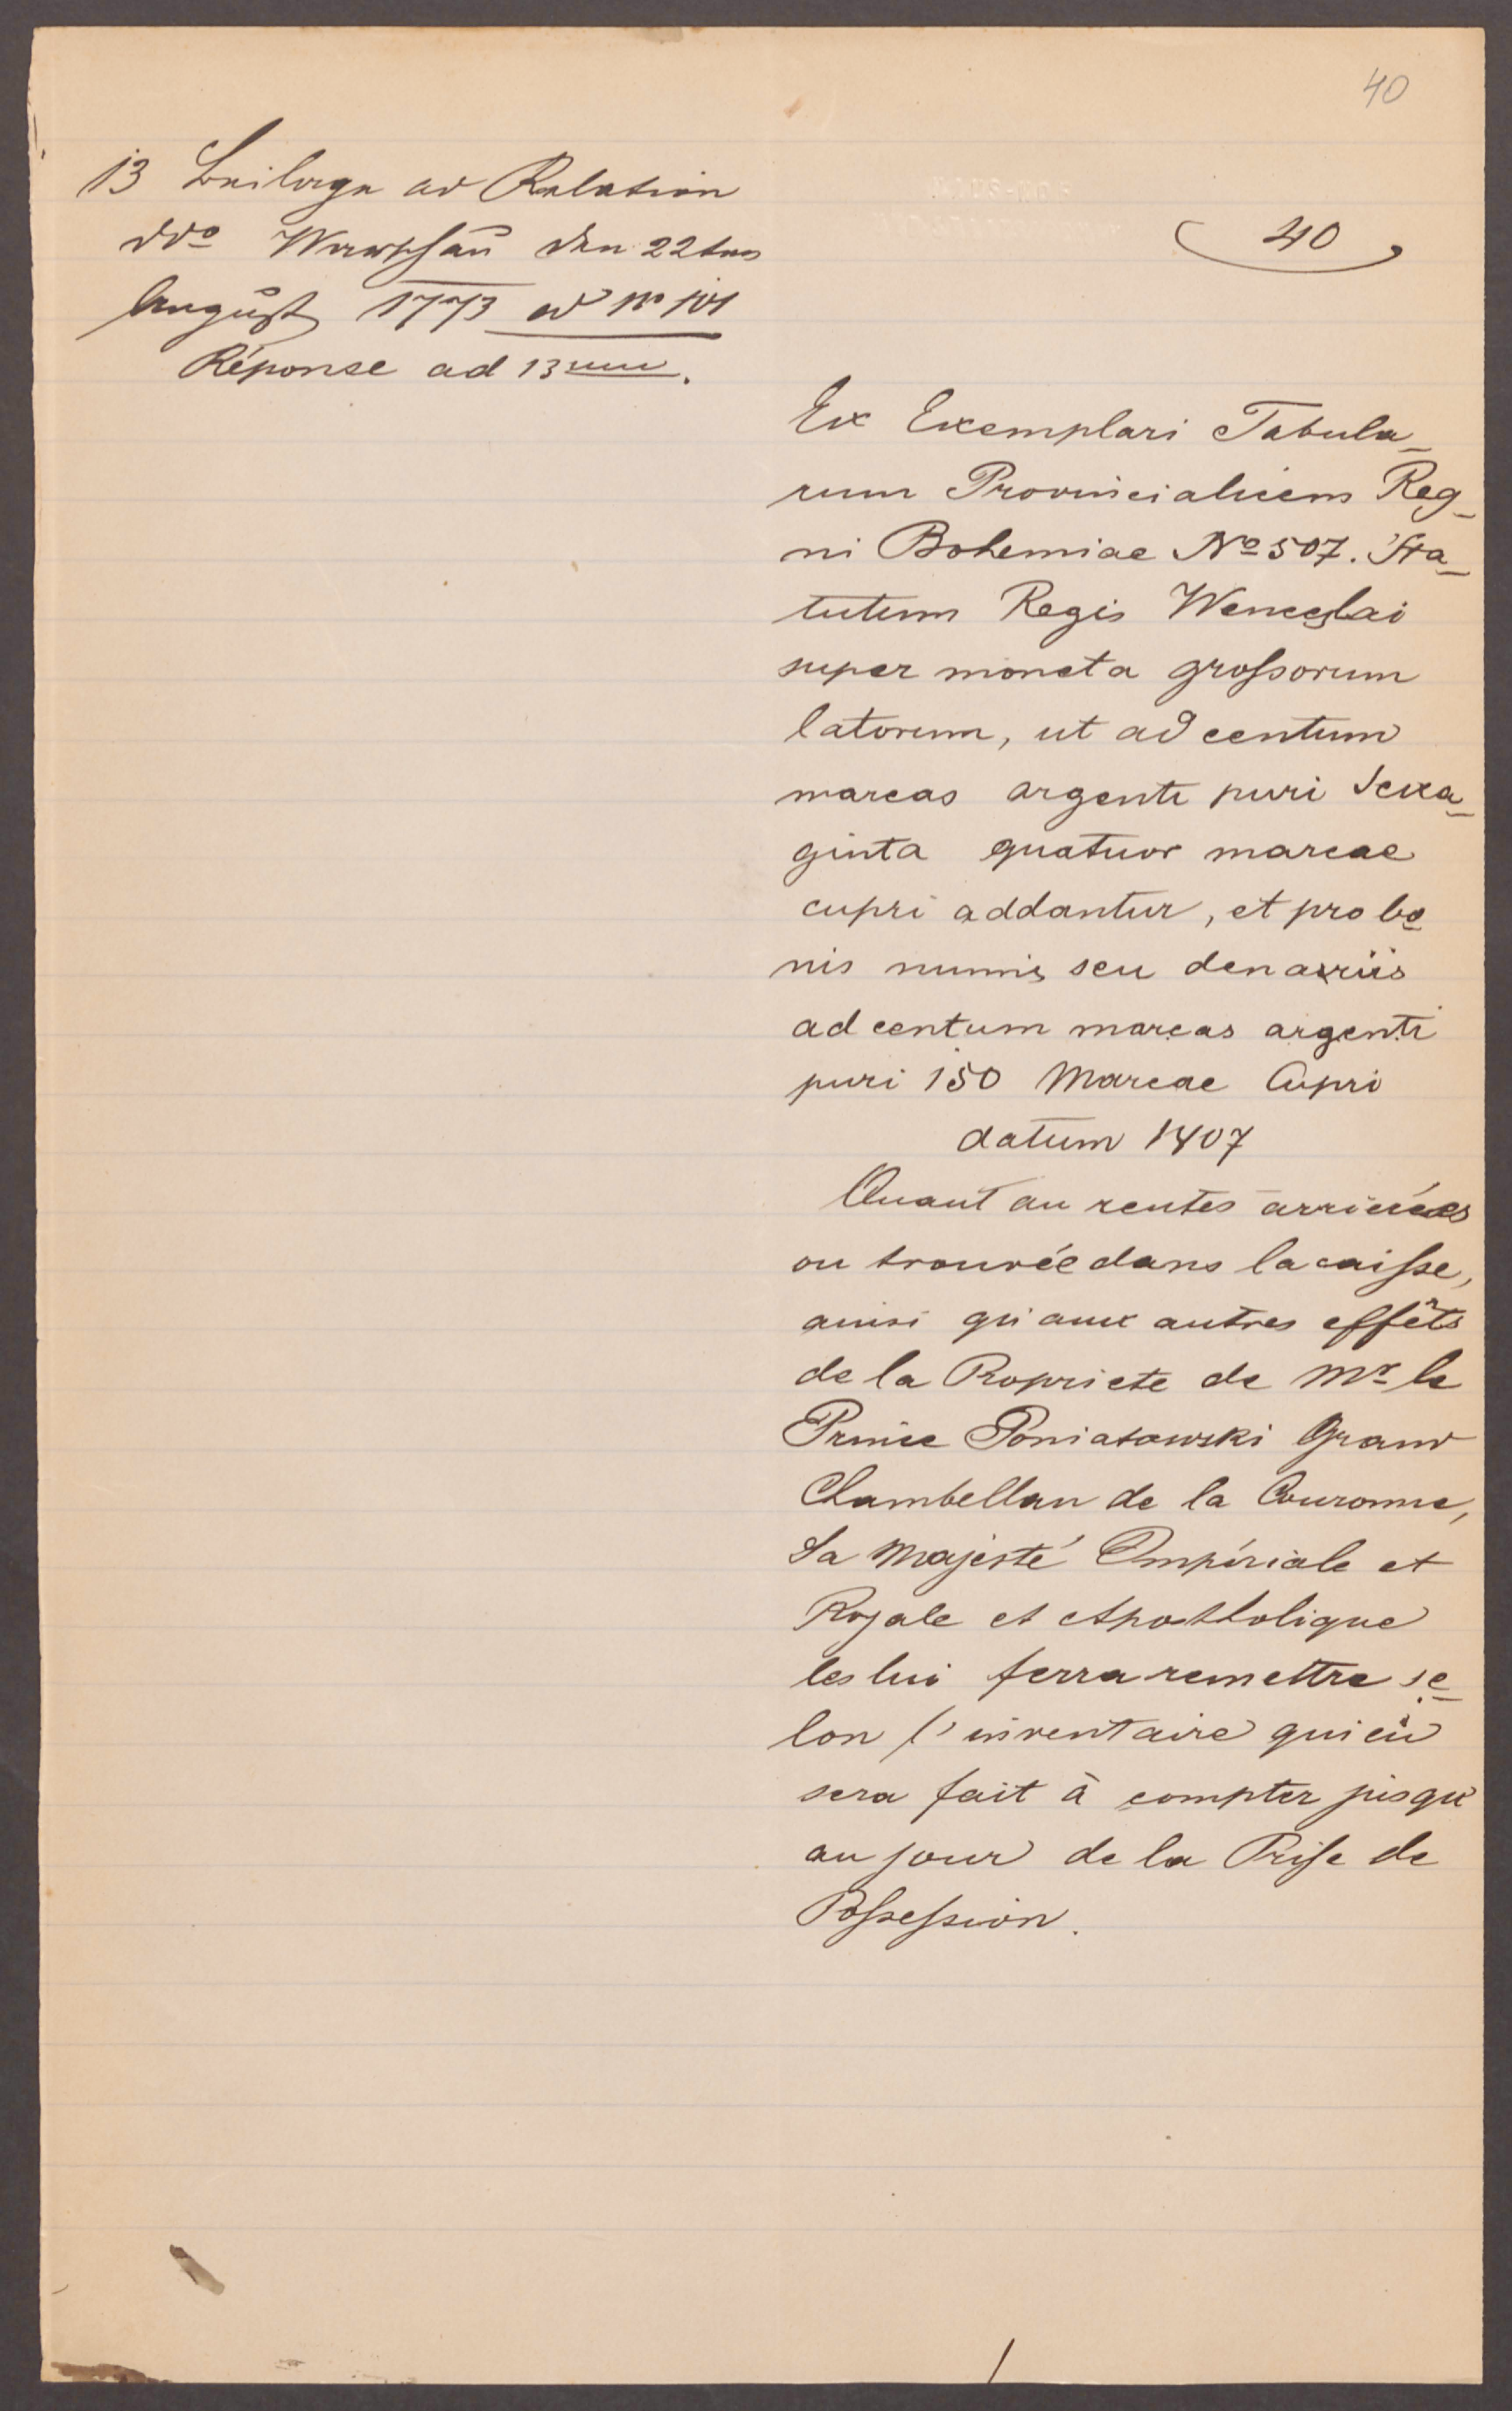 40
13 Beilage ad Relation
ddo Warschau den 22ten
August 1773 ad No 101
Réponse ad 13um.
40
Ex Exemplari Tabula-
rum Provincialium Reg-
ni Bohemiae No 507. Sta-
tutum Regis Wenceslai
super moneta grossorum
latorum, ut ad centum
marcas argenti puri sexa-
ginta quatuor marcae
cupri addantur, et pro bo-
nis numis seu denariis
ad centum marcas argenti
puri 150 Marcae Cupri
datum 1407
Quant au rentes arriérées
ou trouvée dans la caisse,
ainsi qu'aux autres effêts
de la Propriete de Mr le
Prince Poniatowski Grand
Chambellan de la Couronne,
Sa Majesté Impériale et
Royale et Aposttolique
les lui ferra remettre se-
lon l'inventaire qui en
sera fait à compter jusqu'
au jour de la Prise de
Possession.